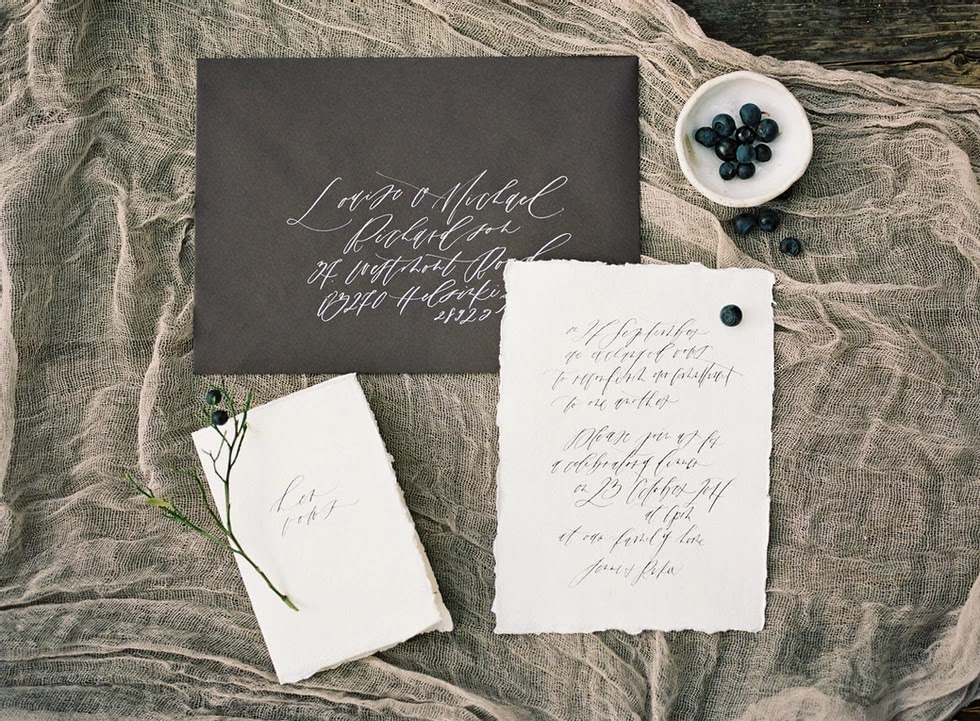 Louise & Michael
Richardson
Westmont Road
Helsinki
28920
her
vows
September
we exchanged vows
to our commitment
to one another
Please join us for
a celebratory dinner
on 23 October
at 6pm
at our family home